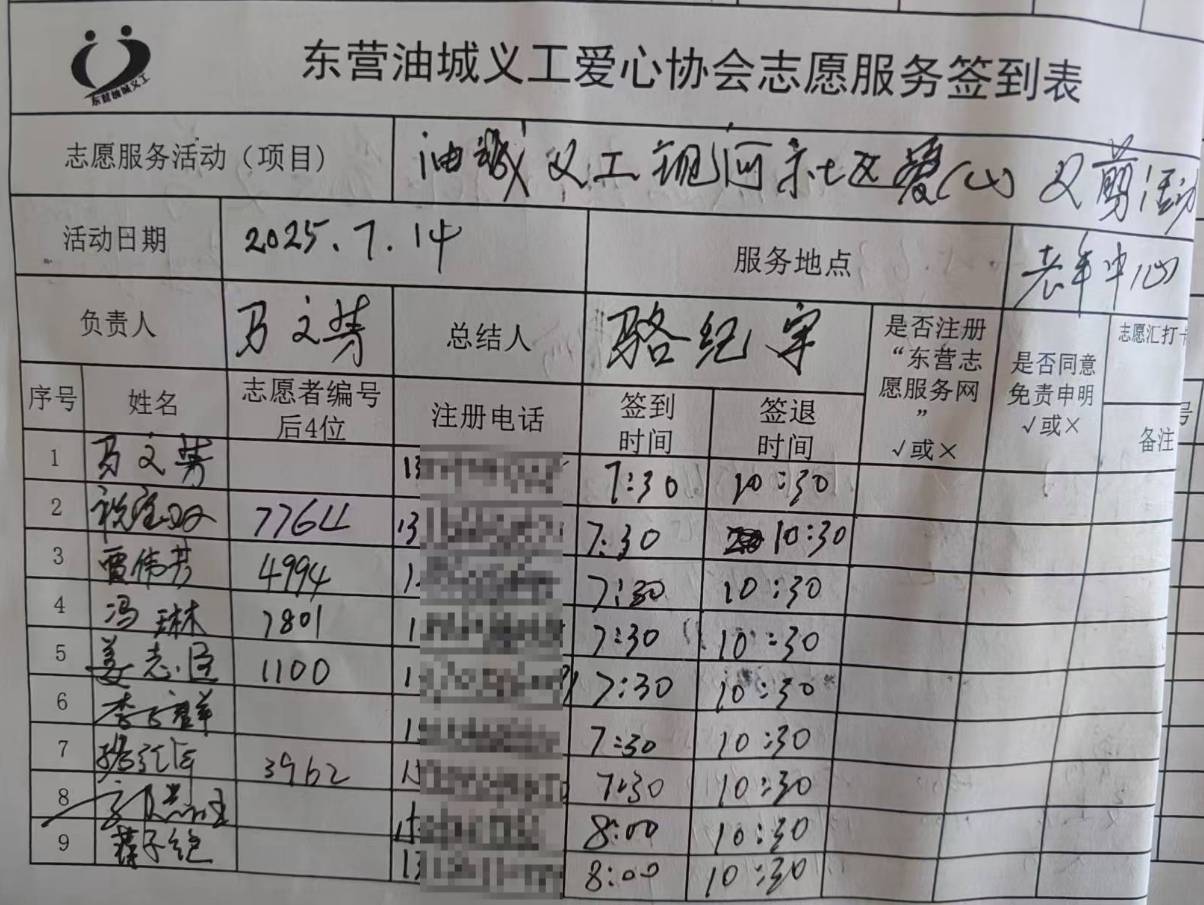 东营油城义工
东营油城义工爱心协会志愿服务签到表
志愿服务活动（项目） 油城义工 河社区爱心义剪活动
活动日期 2025.7.14 服务地点 老年中心
负责人 马文芳 总结人 骆纪宇 是否注册“东营志愿服务网” √或× 是否同意免责申明 √或× 志愿汇打卡
序号 姓名 志愿者编号后4位 注册电话 签到时间 签退时间 备注
1 马文芳 13 7:30 10:30
2 7764 13 7:30 10:30
3 贾伟芳 4994 1 7:30 10:30
4 冯琳 7801 1 7:30 10:30
5 姜志 1100 1 7:30 10:30
6 李 群 1 7:30 10:30
7 3962 15 7:30 10:30
8 15 8:00 10:30
9 13 8:00 10:30
号